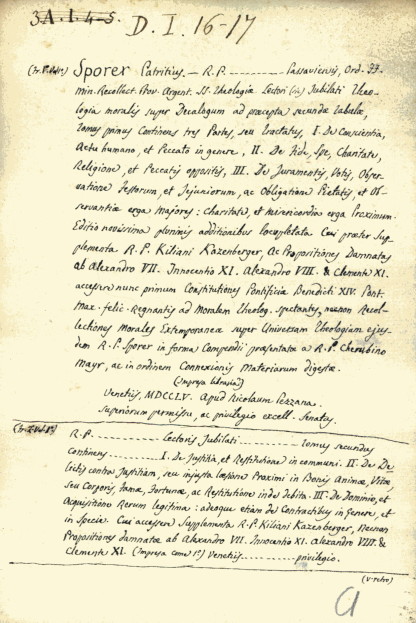 3A. I. 4-5.
D. I. 16-17
Sporer Patritius. — R. P. ———— Passaviensis, Ord. FF.
min. Recollect. Prov. Argent. SS. Theologiæ Lectori (sic) Jubilati Theo-
logia moralis super Decalogum ad præcepta secundæ tabulæ,
tomus primus Continens tres Partes, seu tractatus, I. De Conscientia,
Actu humano, et Peccato in genere, II. De Fide, Spe, Charitate,
Religione, et Peccatis oppositis, III. De Juramentis, Votis, Obser-
vatione Festorum, et Jejuniorum, ac Obligatione Pietatis et Ob-
servantiæ erga majores: charitate, et misericordia erga Proximum.
Editio novissima plurimis additionibus locupletata Cui præter Sup-
plementa R. P. Kiliani Kazenberger, Ac Propositiones Damnatas
ab Alexandro VII. Innocentio XI. Alexandro VIII. & Clemente XI.
accessere nunc primum Constitutiones Pontificia Benedicti XIV. Pont.
Max. felic. Regnantis ad Moralem Theolog. spectantes, necnon Recol-
lectiones Morales Extemporaneæ super Universam Theologiam ejus-
dem R. P. Sporer in forma Compendii præsentatæ a R. P. Cherubino
Mayr, ac in ordinem Connexionis Materiarum digestæ.
(Impresa libraria)
Venetiis, MDCCLV. Apud Nicolaum Pezzana.
Superiorum permissu, ac privilegio excell. Senatus.
R. P. ———— Lectoris Jubilati ———— tomus secundus
Continens ———— I. De Justitia, et Restitutione in communi. II. De De-
lictis contra Justitiam, seu injusta læsione Proximi in Bonis Animæ, Vitæ,
seu Corporis, famæ, Fortunæ, ac Restitutione inde debita. III. De Dominio, et
Acquisitione Rerum legitima: adeoque etiam de Contractibus in Genere, et
in Specie. Cui accessere Supplementa R. P. Kiliani Kazenberger, Necnon
Propositiones damnatæ ab Alexandro VII. Innocentio XI. Alexandro VIII. &
Clemente XI. (Impresa come 1°) Venetiis ———— privilegio.
(v. retro)